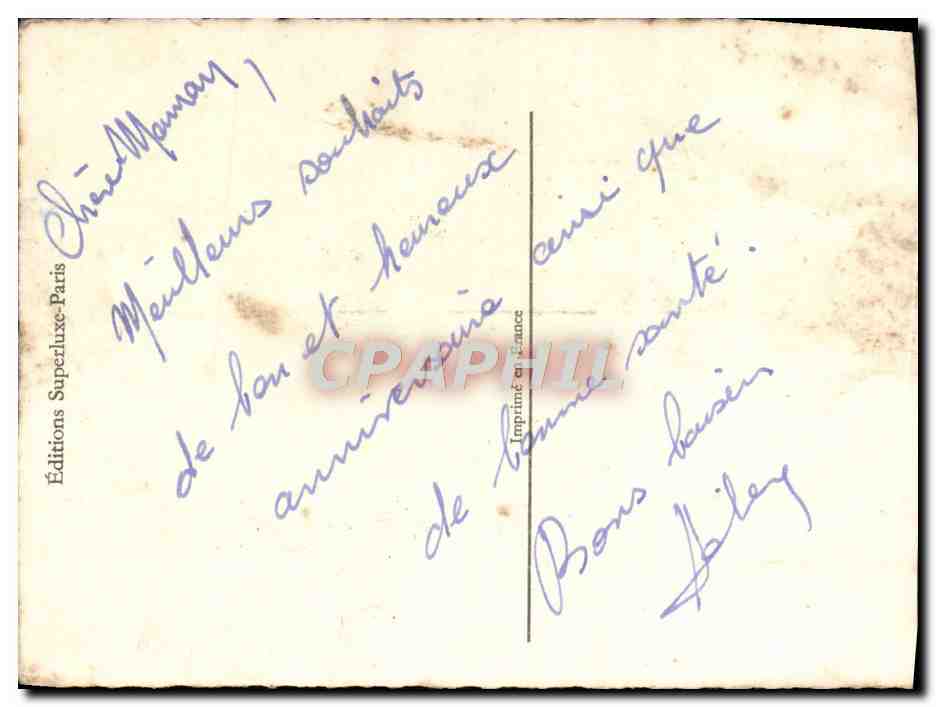 Chère Maman,
Meilleurs souhaits
de bon et heureux
anniversaire ainsi que
de bonne santé.
Bons baisers
Éditions Superluxe-Paris
Imprimé en France
CPAPHIL